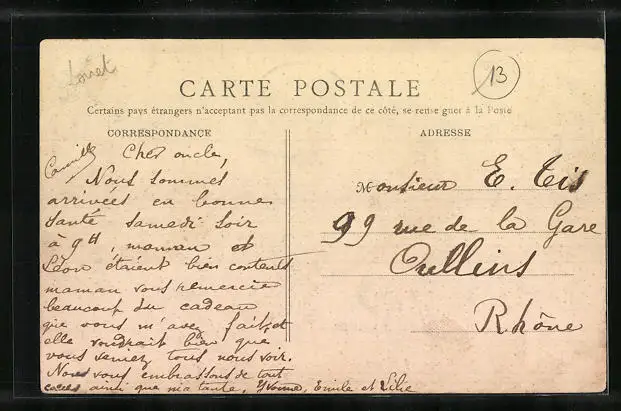 Loiret
13
CARTE POSTALE
Certains pays étrangers n'acceptant pas la correspondance de ce côté, se renseigner à la Poste
CORRESPONDANCE
Camille
Cher oncle,
Nous sommes
arrivées en bonne
santé samedi soir
à 9H, maman et
Léon étaient bien contents
maman vous remercie
beaucoup du cadeau
que vous m'avez fait, et
elle voudrait bien que
vous veniez tous nous voir.
Nous vous embrassons de tout
cœurs ainsi que ma tante, Yvonne, Emile et Lilie
ADRESSE
Monsieur E. Tis
99 rue de la Gare
Oullins
Rhône